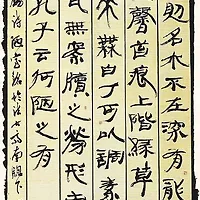 則名水不在深有龍
馨苔痕上階綠草
来無白丁可以調素
耳無案牘之勞形南
孔子云何陋之有